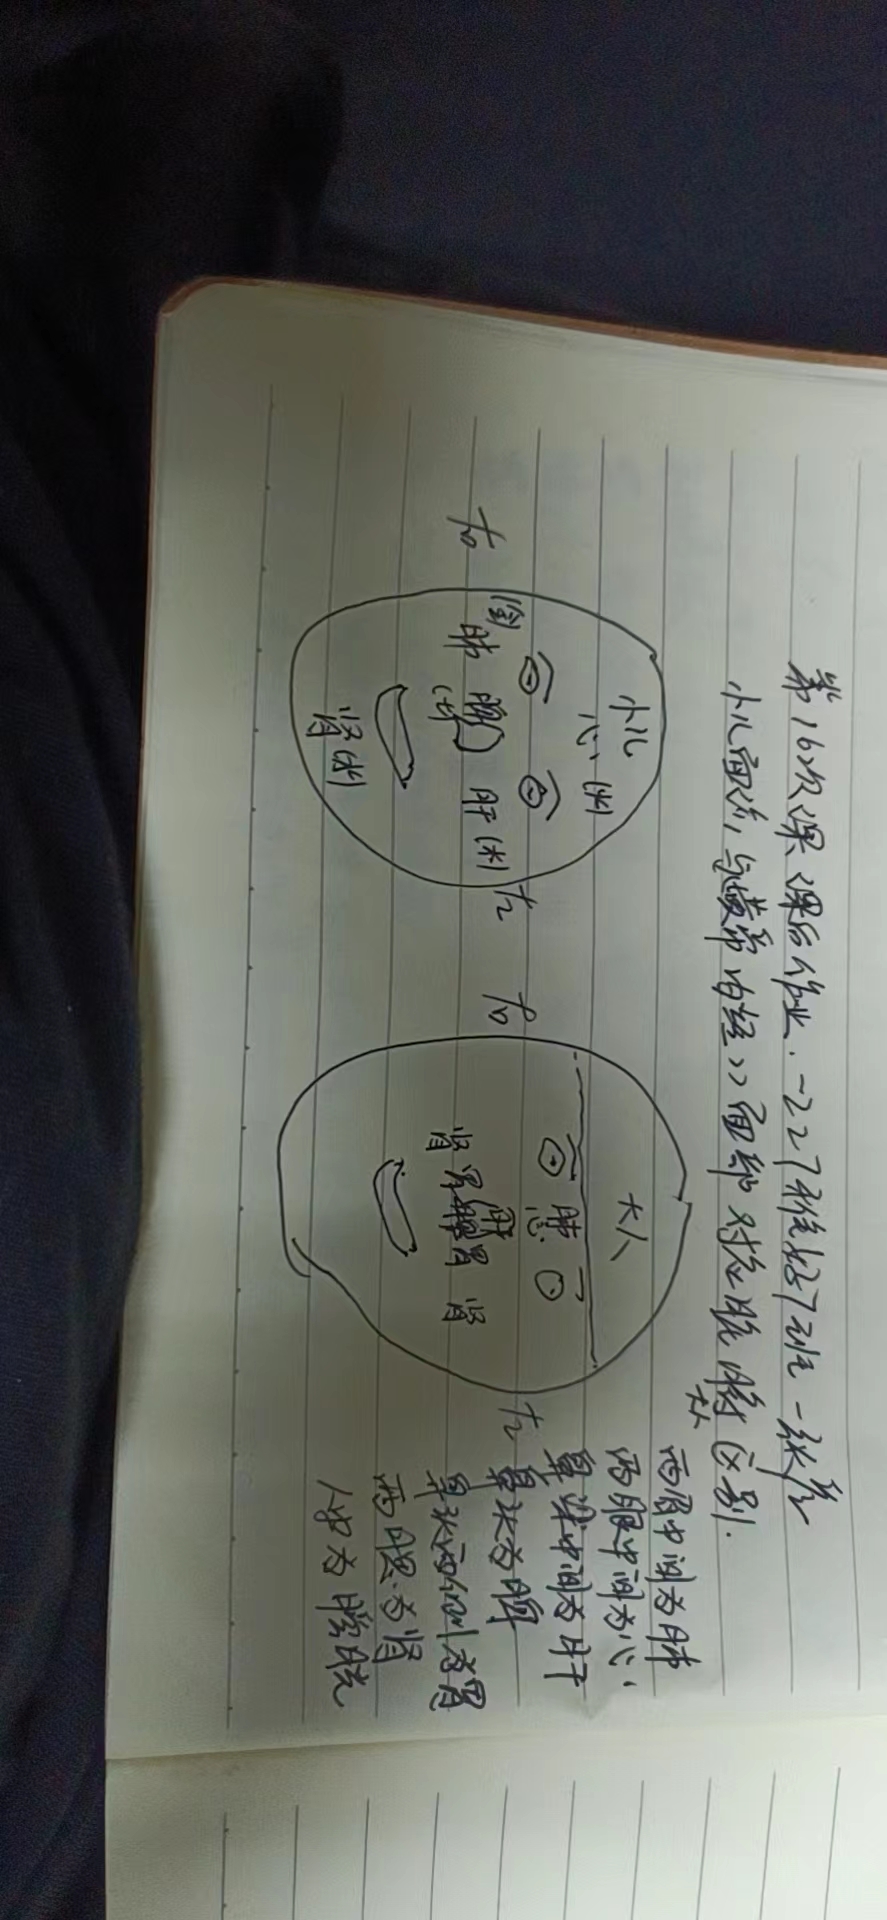 第16次课 课后作业.-227雅好7班-张
小儿面诊,与黄帝内经》面部对应脏腑区别.
小儿
心(火)
右
肺(金)
脾(土)
肝(木)
左
肾(水)
大人
右
肺
心
肝
肾 胃 脾 胃 肾
左
大人
两眉中间为肺
两眼中间为心
鼻梁中间为肝
鼻头为脾
鼻头两侧为胃
两腮为肾
人中为膀胱